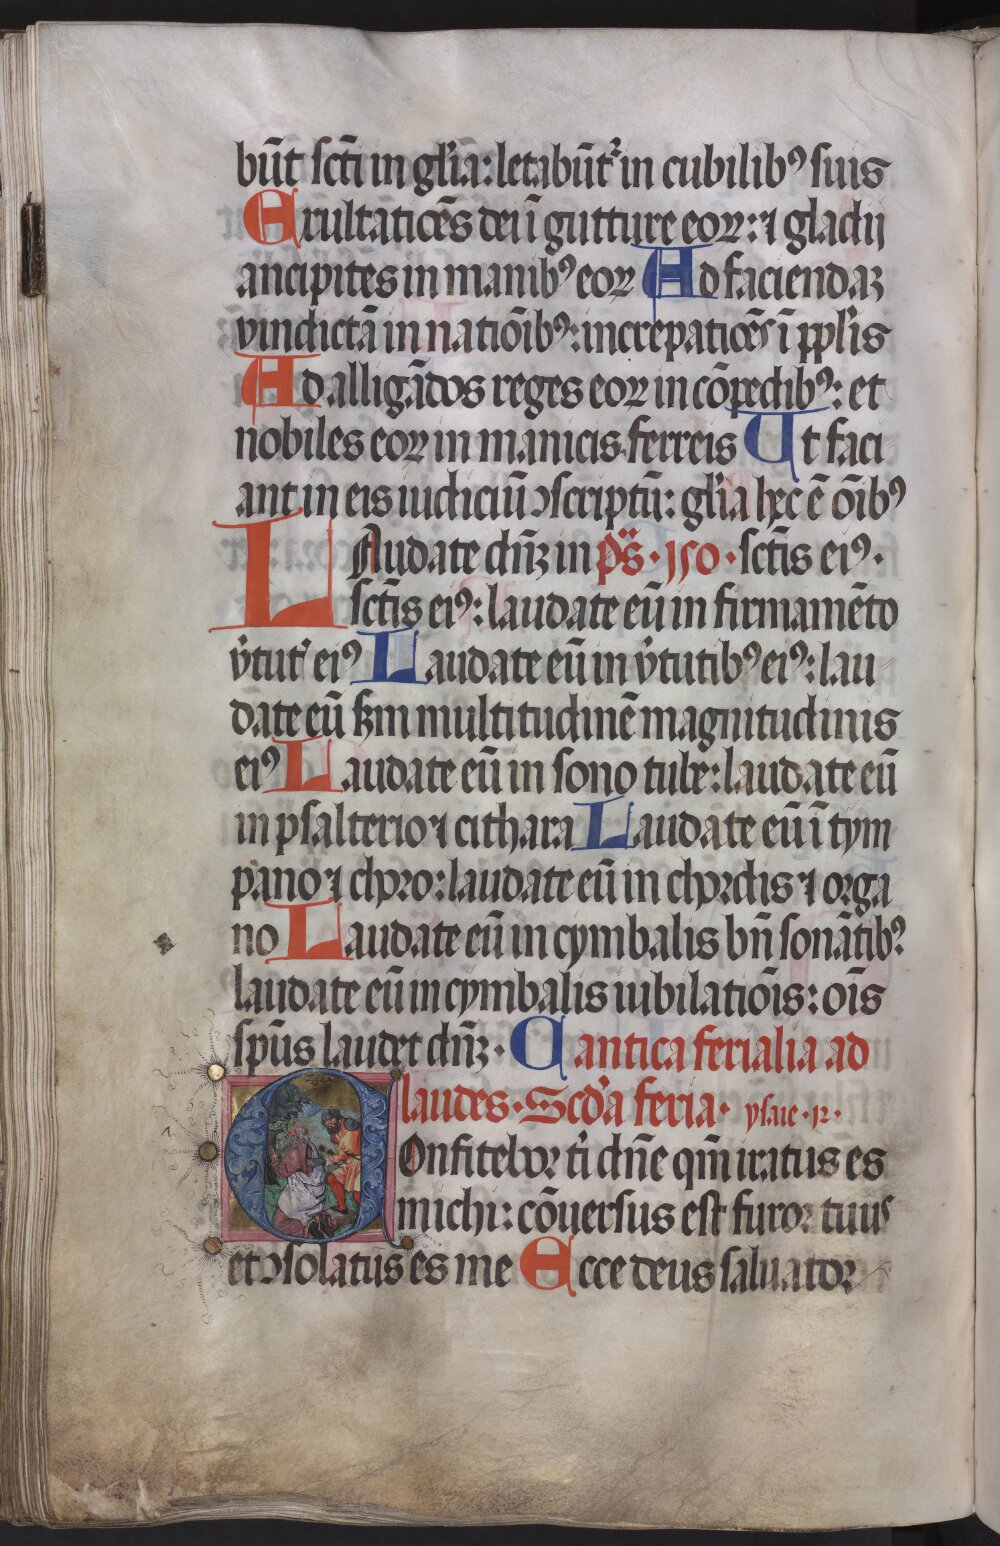 būt sc̄ti in gl̄ia: letabūt᷑ in cubilibꝰ suis
Exultatiōēs dei ī gutture eoꝝ: ⁊ gladij
ancipites in manibꝰ eoꝝ Ad faciendaꝫ
vindictā in natiōibꝰ: increpatiōēs ī pp̄lis
Ad alligādos reges eoꝝ in cōpedibꝰ: et
nobiles eoꝝ in manicis ferreis Ut faci
ant in eis iudiciū ꝯscriptū: gl̄ia hec ē oībꝰ
LAudate dn̄ꝫ in pṡ · 150 · sc̄tis eiꝰ ·
sc̄tis eiꝰ: laudate eū in firmamēto
v̓tut̓ eiꝰ Laudate eū in v̓tutibꝰ eiꝰ: lau
date eū scd̄m multitudinē magnitudinis
eiꝰ Laudate eū in sono tube: laudate eū
in psalterio ⁊ cithara Laudate eū ī tym
pano ⁊ choro: laudate eū in chordis ⁊ orga
no Laudate eū in cymbalis bn̄ sonātibꝰ
laudate eū in cymbalis iubilatiōis: oīs
sp̄us laudet dn̄ꝫ · Cantica ferialia ad
laudes · Scd̓a feria · ysaie · 12 ·
COnfitebor ti̓ dn̄e qm̄ iratus es
michi: cōuersus est furor tuus
et ꝯsolatus es me Ecce deus saluator